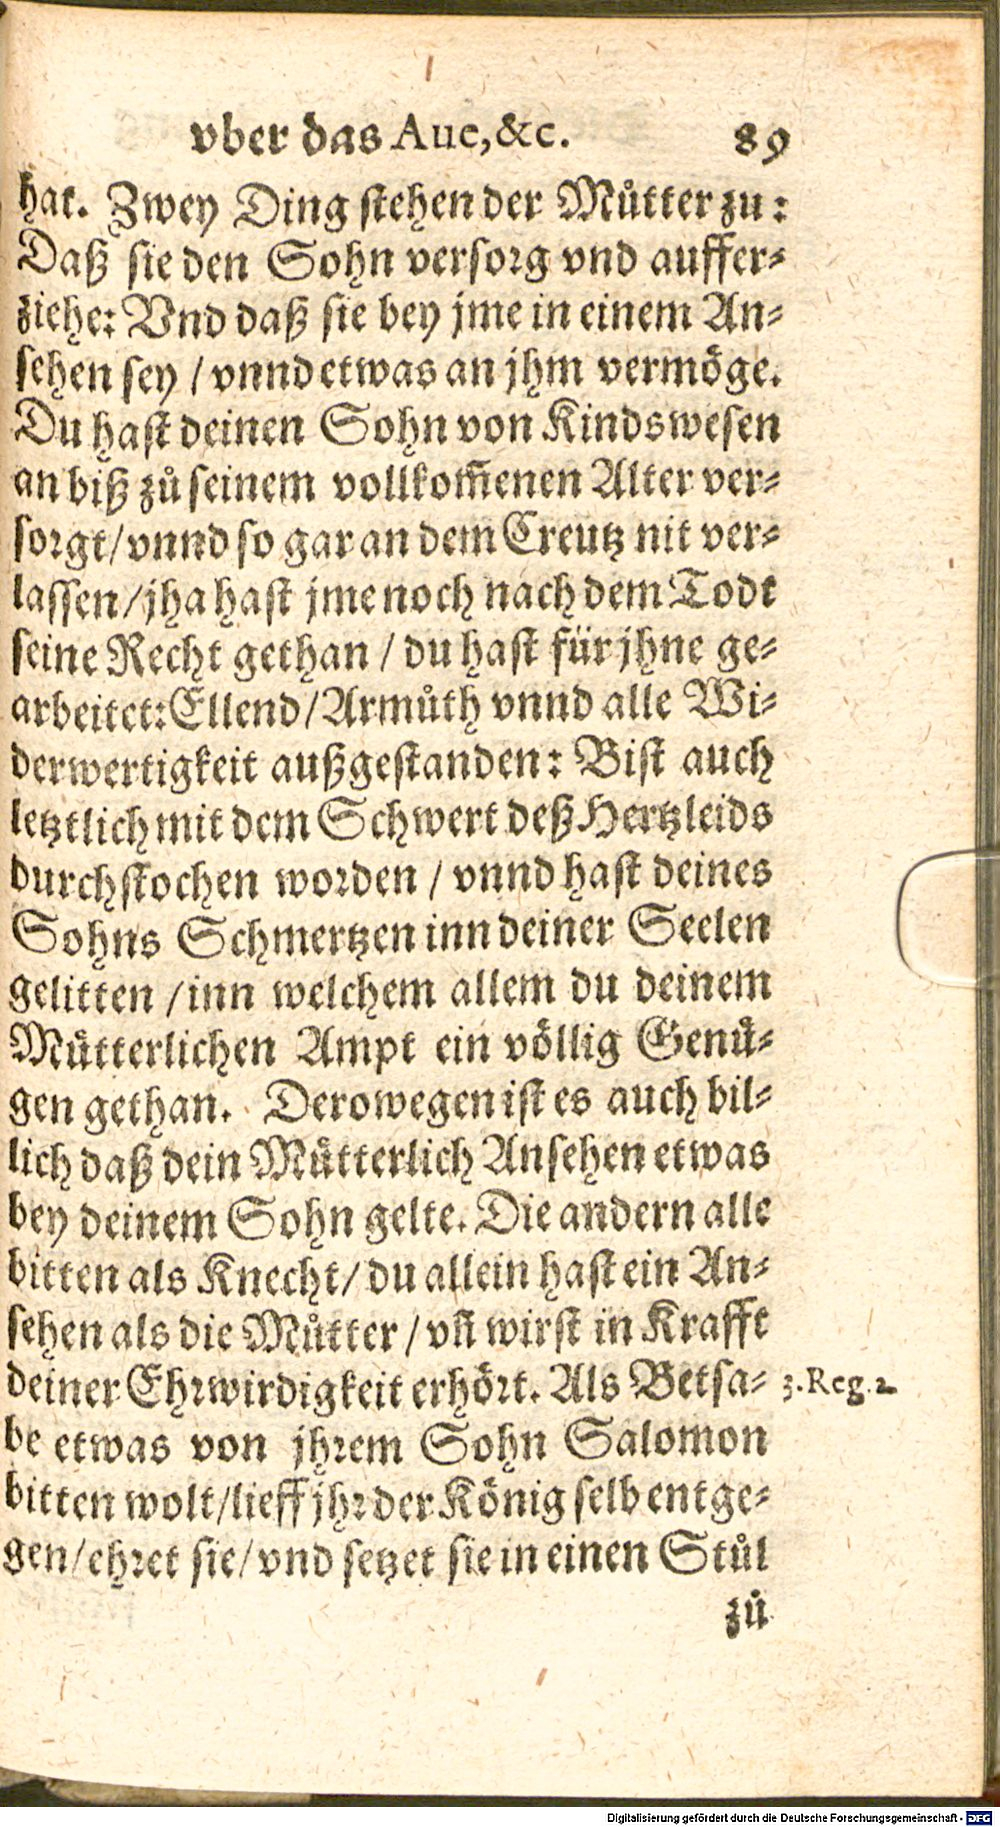 vber das Aue, &c. 89
hat. Zwey Ding stehen der Můtter zu:
Daß sie den Sohn versorg vnd auffer-
ziehe: Vnd daß sie bey jme in einem An-
sehen sey / vnnd etwas an jhm vermöge.
Du hast deinen Sohn von Kindswesen
an biß zů seinem vollkom̃enen Alter ver-
sorgt/ vnnd so gar an dem Creutz nit ver-
lassen/ jha hast jme noch nach dem Todt
seine Recht gethan / du hast für jhne ge-
arbeitet: Ellend/ Armůth vnnd alle Wi-
derwertigkeit außgestanden: Bist auch
letztlich mit dem Schwert deß Hertzleids
durchstochen worden / vnnd hast deines
Sohns Schmertzen inn deiner Seelen
gelitten / inn welchem allem du deinem
Můtterlichen Ampt ein völlig Genů-
gen gethan. Derowegen ist es auch bil-
lich daß dein Můtterlich Ansehen etwas
bey deinem Sohn gelte. Die andern alle
bitten als Knecht/ du allein hast ein An-
sehen als die Můtter / vñ wirst in Krafft
deiner Ehrwirdigkeit erhört. Als Betsa- 3. Reg. 2.
be etwas von jhrem Sohn Salomon
bitten wolt/ lieff jhr der König selb entge-
gen/ ehret sie/ vnd setzet sie in einen Stůl
zů
Digitalisierung gefördert durch die Deutsche Forschungsgemeinschaft - DFG